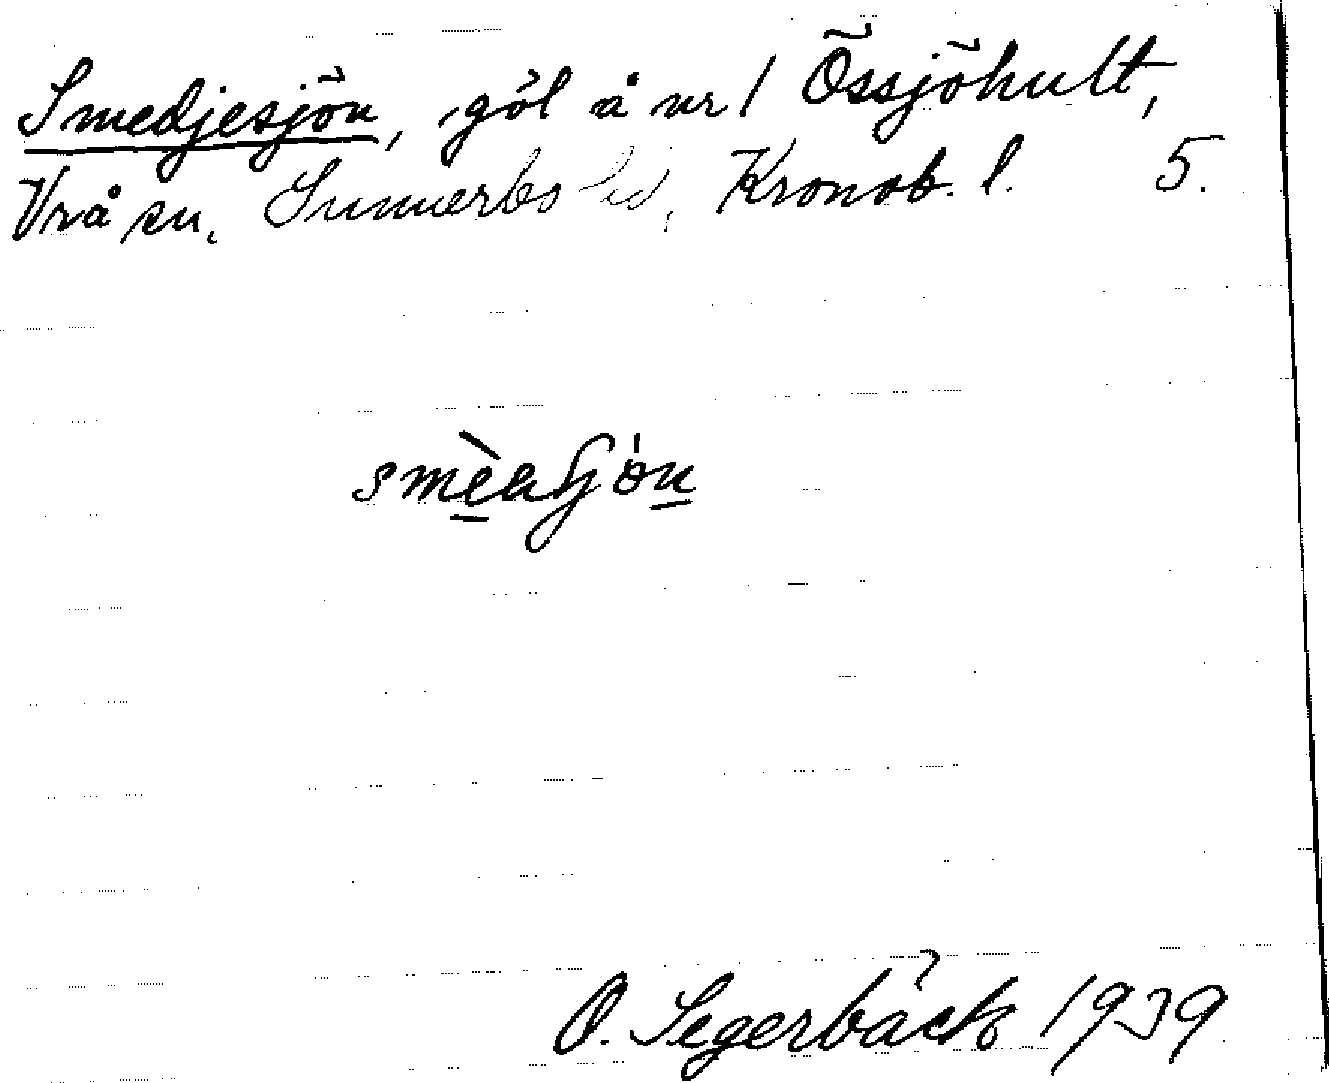 Smedjesjön, göl å nr 1 Össjöhult,
Vrå sn, Sunnerbo hd, Kronob. l. 5.
smèaʃjön
O. Segerbäck 1939